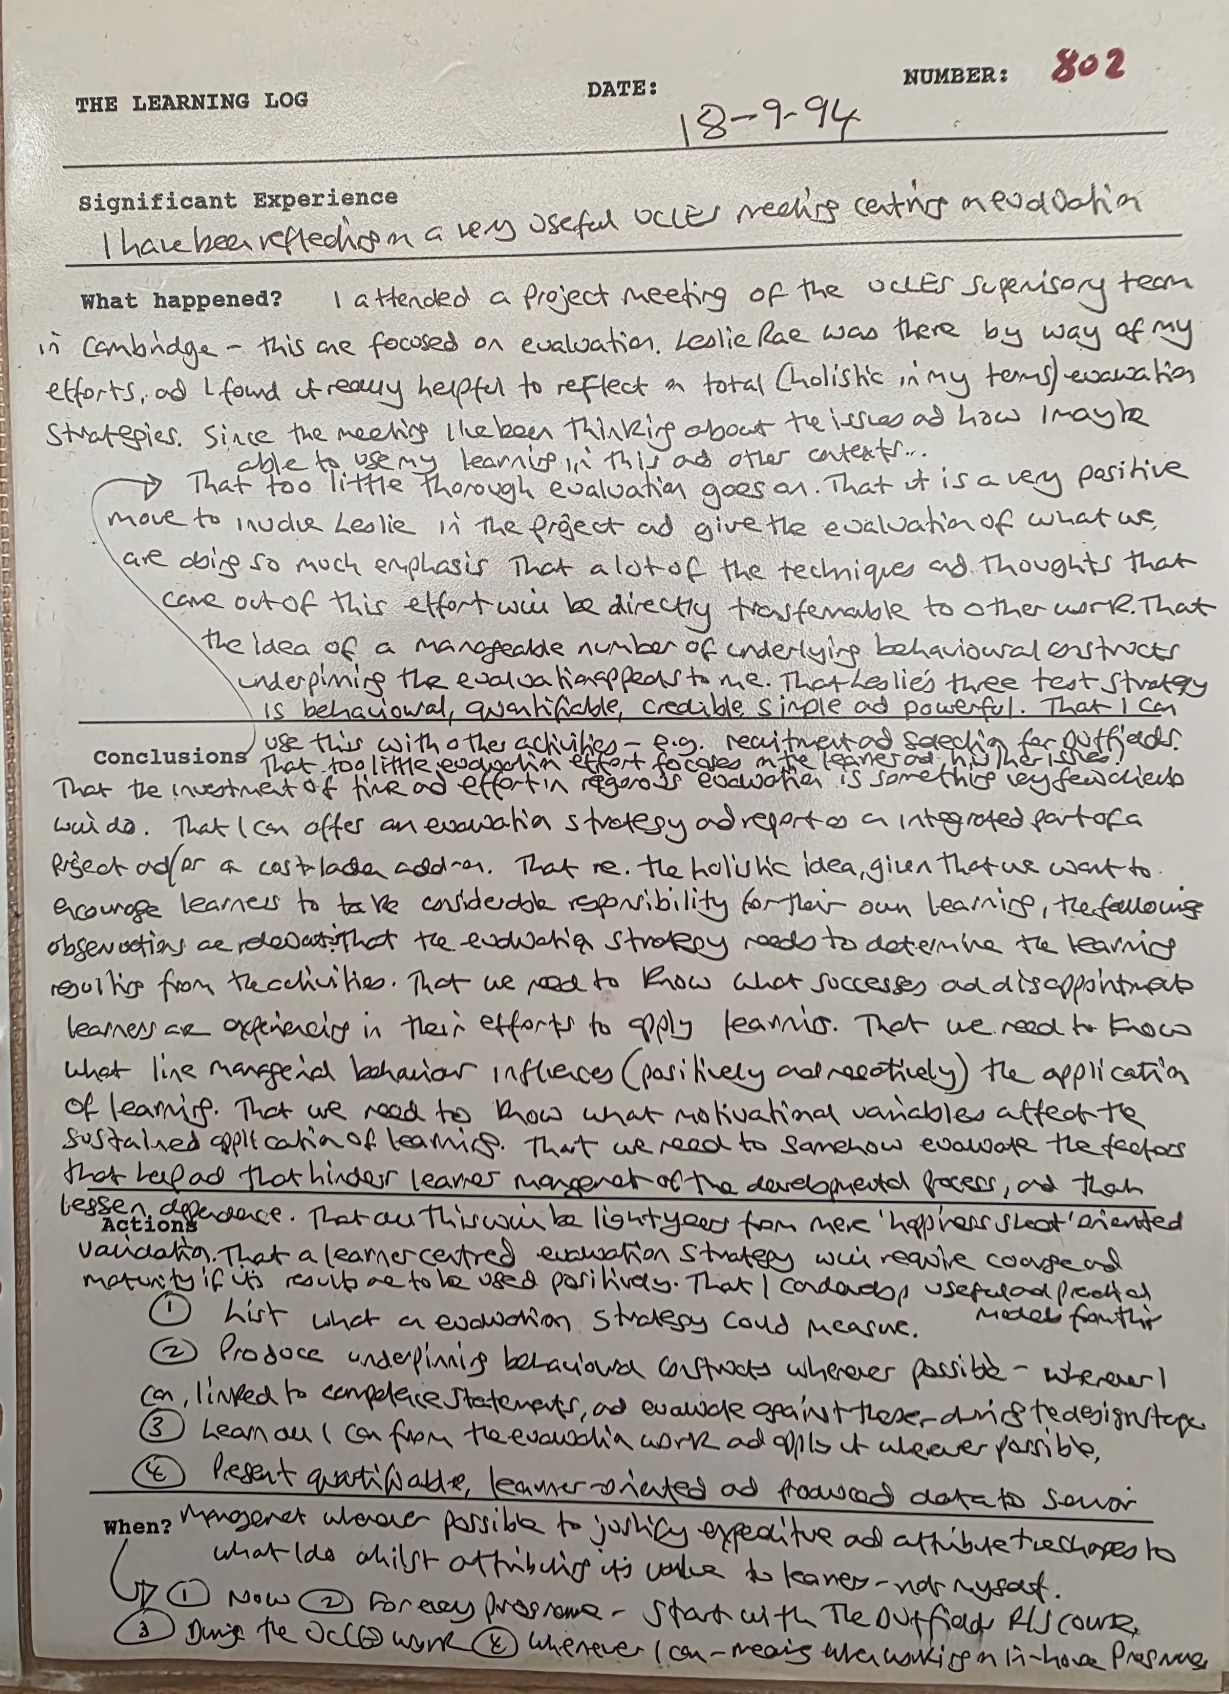 THE LEARNING LOG
DATE:
18-9-94
NUMBER: 802
Significant Experience
I have been reflecting on a very useful UCLES meeting centring on evaluation
What happened? I attended a project meeting of the UCLES supervisory team
in Cambridge - this one focused on evaluation. Leslie Rae was there by way of my
efforts, and I found it really helpful to reflect on total (holistic in my terms) evaluation
strategies. Since the meeting I've been thinking about the issues and how I may be
able to use my learning in this and other contexts...
That too little thorough evaluation goes on. That it is a very positive
move to involve Leslie in the project and give the evaluation of what we
are doing so much emphasis That a lot of the techniques and thoughts that
come out of this effort will be directly transferrable to other work. That
the idea of a manageable number of underlying behavioural constructs
underpinning the evaluation appeals to me. That Leslie's three test strategy
is behavioural, quantifiable, credible, simple and powerful. That I can
use this with other activities - e.g. recruitment and selection for Duffields.
Conclusions That too little evaluation effort focuses on the learner and his/her issues.
That the investment of time and effort in regorous evaluation is something very few clients
will do. That I can offer an evaluation strategy and report as an integrated part of a
project and/or a cost-laden add-on. That re. the holistic idea, given that we want to
encourage learners to take considerable responsibility for their own learning, the following
observations are relevant: That the evaluation strategy needs to determine the learning
resulting from the activities. That we need to know what successes and disappointments
learners are experiencing in their efforts to apply learning. That we need to know
what line managerial behaviour influences (positively and negatively) the application
of learning. That we need to know what motivational variables affect the
sustained application of learning. That we need to somehow evaluate the factors
that help and that hinder learner management of the developmental process, and that
lessen dependence. That all this will be light years from mere 'happiness sheet' oriented
Actions
validation. That a learner centred evaluation strategy will require courage and
maturity if its results are to be used positively. That I can develop useful and practical
models from this
① List what an evaluation strategy could measure.
② Produce underpinning behavioural constructs wherever possible - wherever I
can, linked to competence statements, and evaluate against these - during the design stage
③ Learn all I can from the evaluation work and apply it wherever possible,
④ Present quantifiable, learner-oriented and focused data to senior
When? Management wherever possible to justify expenditure and attribute the changes to
what I do whilst attributing its value to learners - not myself.
① Now ② For every programme - start with the Duffields RLS course,
③ During the UCLES work ④ Whenever I can - means when working on in-house Programmes